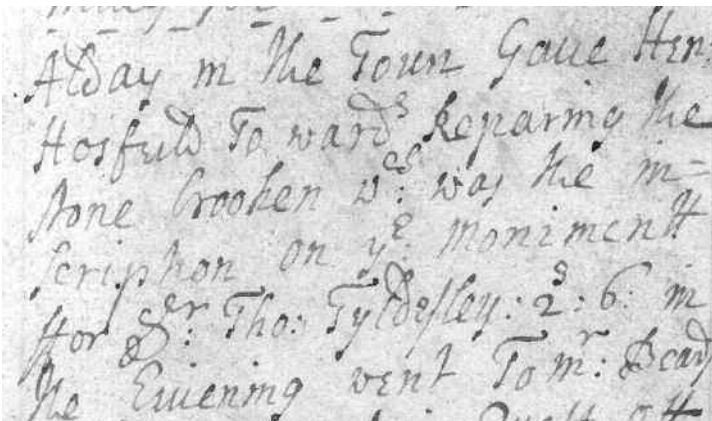 Alday in the Toun Gave Hen:
Hosfeild To wards Repairing the
stone brooken wch: was the in=
scription on ye: moniment
ffor Sr: Tho: Tyldesley: 2s: 6: in
the Euiening went To mr: